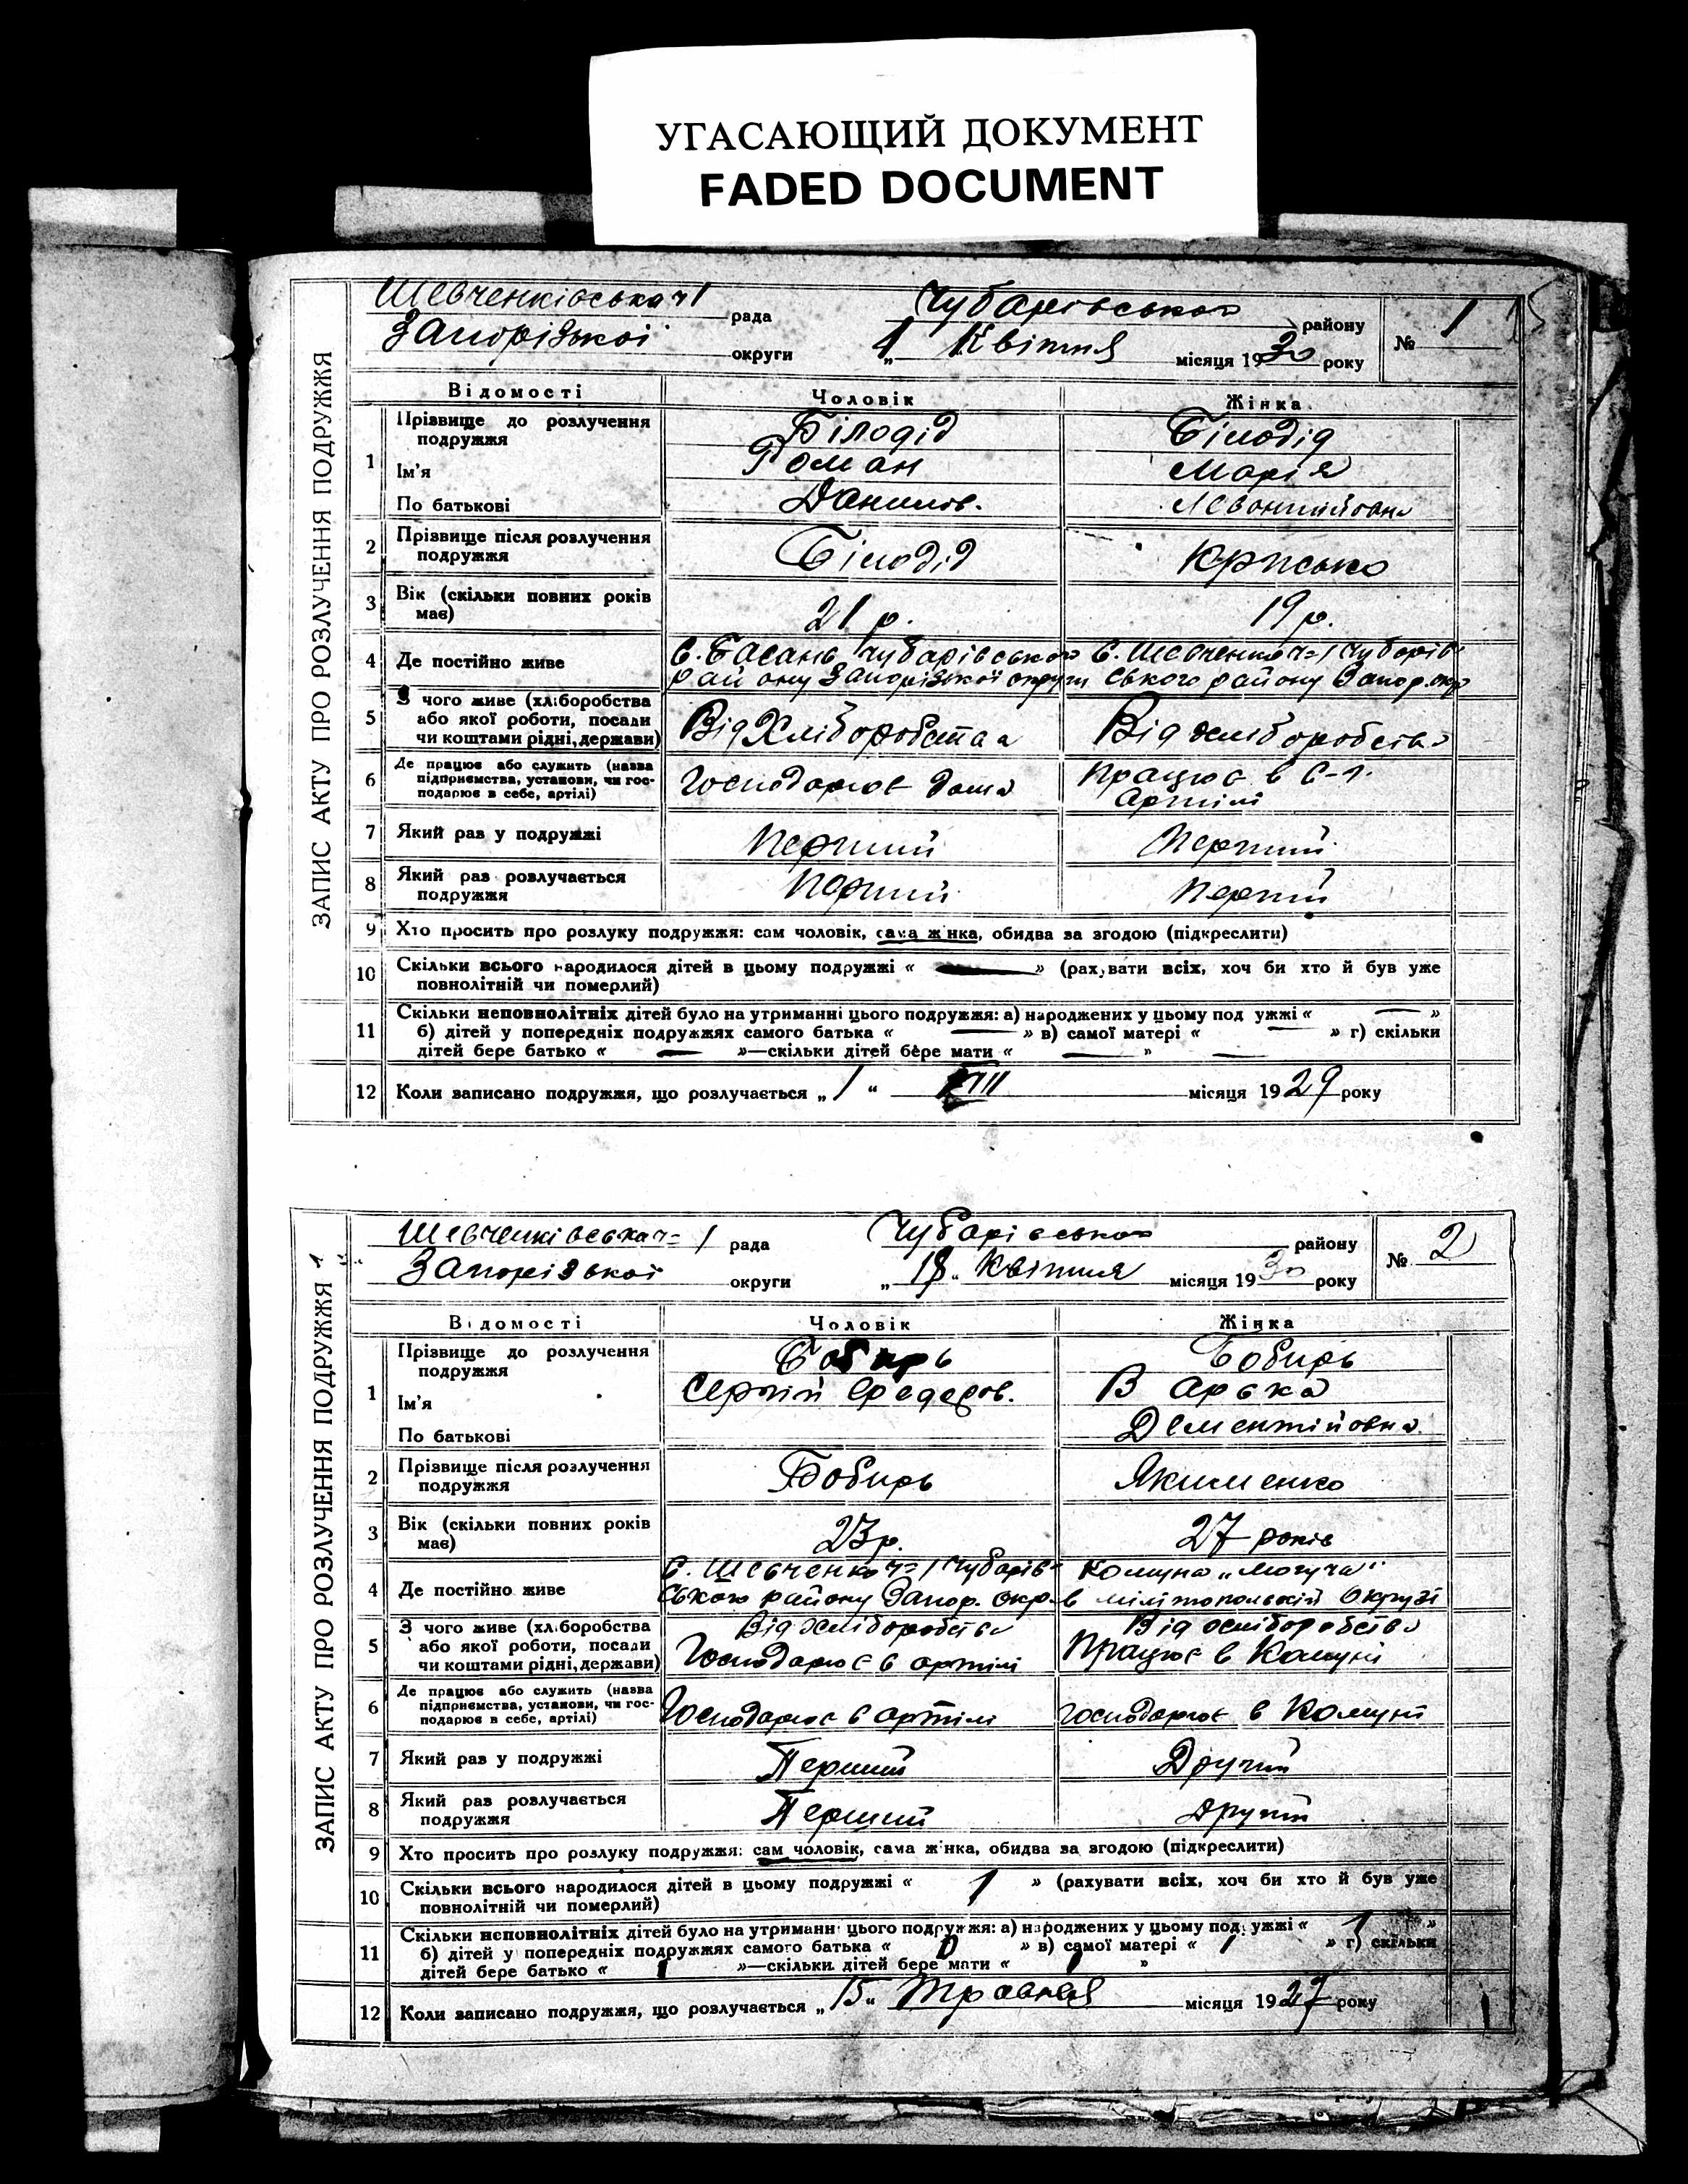 УГАСАЮЩИЙ ДОКУМЕНТ
FADED DOCUMENT
ЗАПИС АКТУ ПРО РОЗЛУЧЕННЯ ПОДРУЖЖЯ
Шевченківська ч 1 рада Чубарівського району № 1
Запорізької округи „ 1 Квітня місяця 1930 року
Відомості Чоловік Жінка
1 Прізвище до розлучення подружжя Білодід Білодід
Ім'я Роман Марія
По батькові Данилов.
2 Прізвище після розлучення подружжя Білодід
3 Вік (скільки повних років має) 21 р. 19 р.
4 Де постійно живе С. Басань Чубарівського С. Шевченко ч=1 Чубарів-
району Запорізької округи ського району Запор. окр
5 З чого живе (хліборобства або якої роботи, посади чи коштами рідні, держави) Від Хліборобства Від хліборобства
6 Де працює або служить (назва підприємства, установи, чи господарює в себе, артілі) Господарює дома Працює в С-г. Артілі
7 Який раз у подружжі Перший Перший
8 Який раз розлучається подружжя Перший Перший
9 Хто просить про розлуку подружжя: сам чоловік, сама жінка, обидва за згодою (підкреслити)
10 Скільки всього народилося дітей в цьому подружжі « — » (рахувати всіх, хоч би хто й був уже
повнолітній чи померлий)
11 Скільки неповнолітніх дітей було на утриманні цього подружжя: а) народжених у цьому подружжі « — »
б) дітей у попередніх подружжях самого батька « — » в) самої матері « — » г) скільки
дітей бере батько « — »—скільки дітей бере мати « — »
12 Коли записано подружжя, що розлучається „ 1 “ місяця 1929 року
ЗАПИС АКТУ ПРО РОЗЛУЧЕННЯ ПОДРУЖЖЯ
Шевченківська ч= 1 рада Чубарівського району № 2
Запорізької округи „ 18 “ Квітня місяця 1930 року
Відомості Чоловік Жінка
1 Прізвище до розлучення подружжя Бобирь Бобирь
Ім'я Сергій Федеров. Варька
По батькові Дементійовна
2 Прізвище після розлучення подружжя Бобирь Якименко
3 Вік (скільки повних років має) 23 р. 27 років
4 Де постійно живе С. Шевченко ч=1 Чубарів- Комуна „Могуча“
ського району Запор. окр. в мілітопольскій Окрузі
5 З чого живе (хліборобства або якої роботи, посади чи коштами рідні, держави) Від хліборобства Від хліборобства
Господарює в артілі Працює в Комуні
6 Де працює або служить (назва підприємства, установи, чи господарює в себе, артілі) Господарює в артілі господарює в Комуні
7 Який раз у подружжі Перший Другий
8 Який раз розлучається подружжя Перший Другий
9 Хто просить про розлуку подружжя: сам чоловік, сама жінка, обидва за згодою (підкреслити)
10 Скільки всього народилося дітей в цьому подружжі « 1 » (рахувати всіх, хоч би хто й був уже
повнолітній чи померлий)
11 Скільки неповнолітніх дітей було на утриманні цього подружжя: а) народжених у цьому подружжі « 1 »
б) дітей у попередніх подружжях самого батька « 0 » в) самої матері « 1 » г) скільки
дітей бере батько « »—скільки дітей бере мати « »
12 Коли записано подружжя, що розлучається „ 15 “ Травня місяця 1927 року